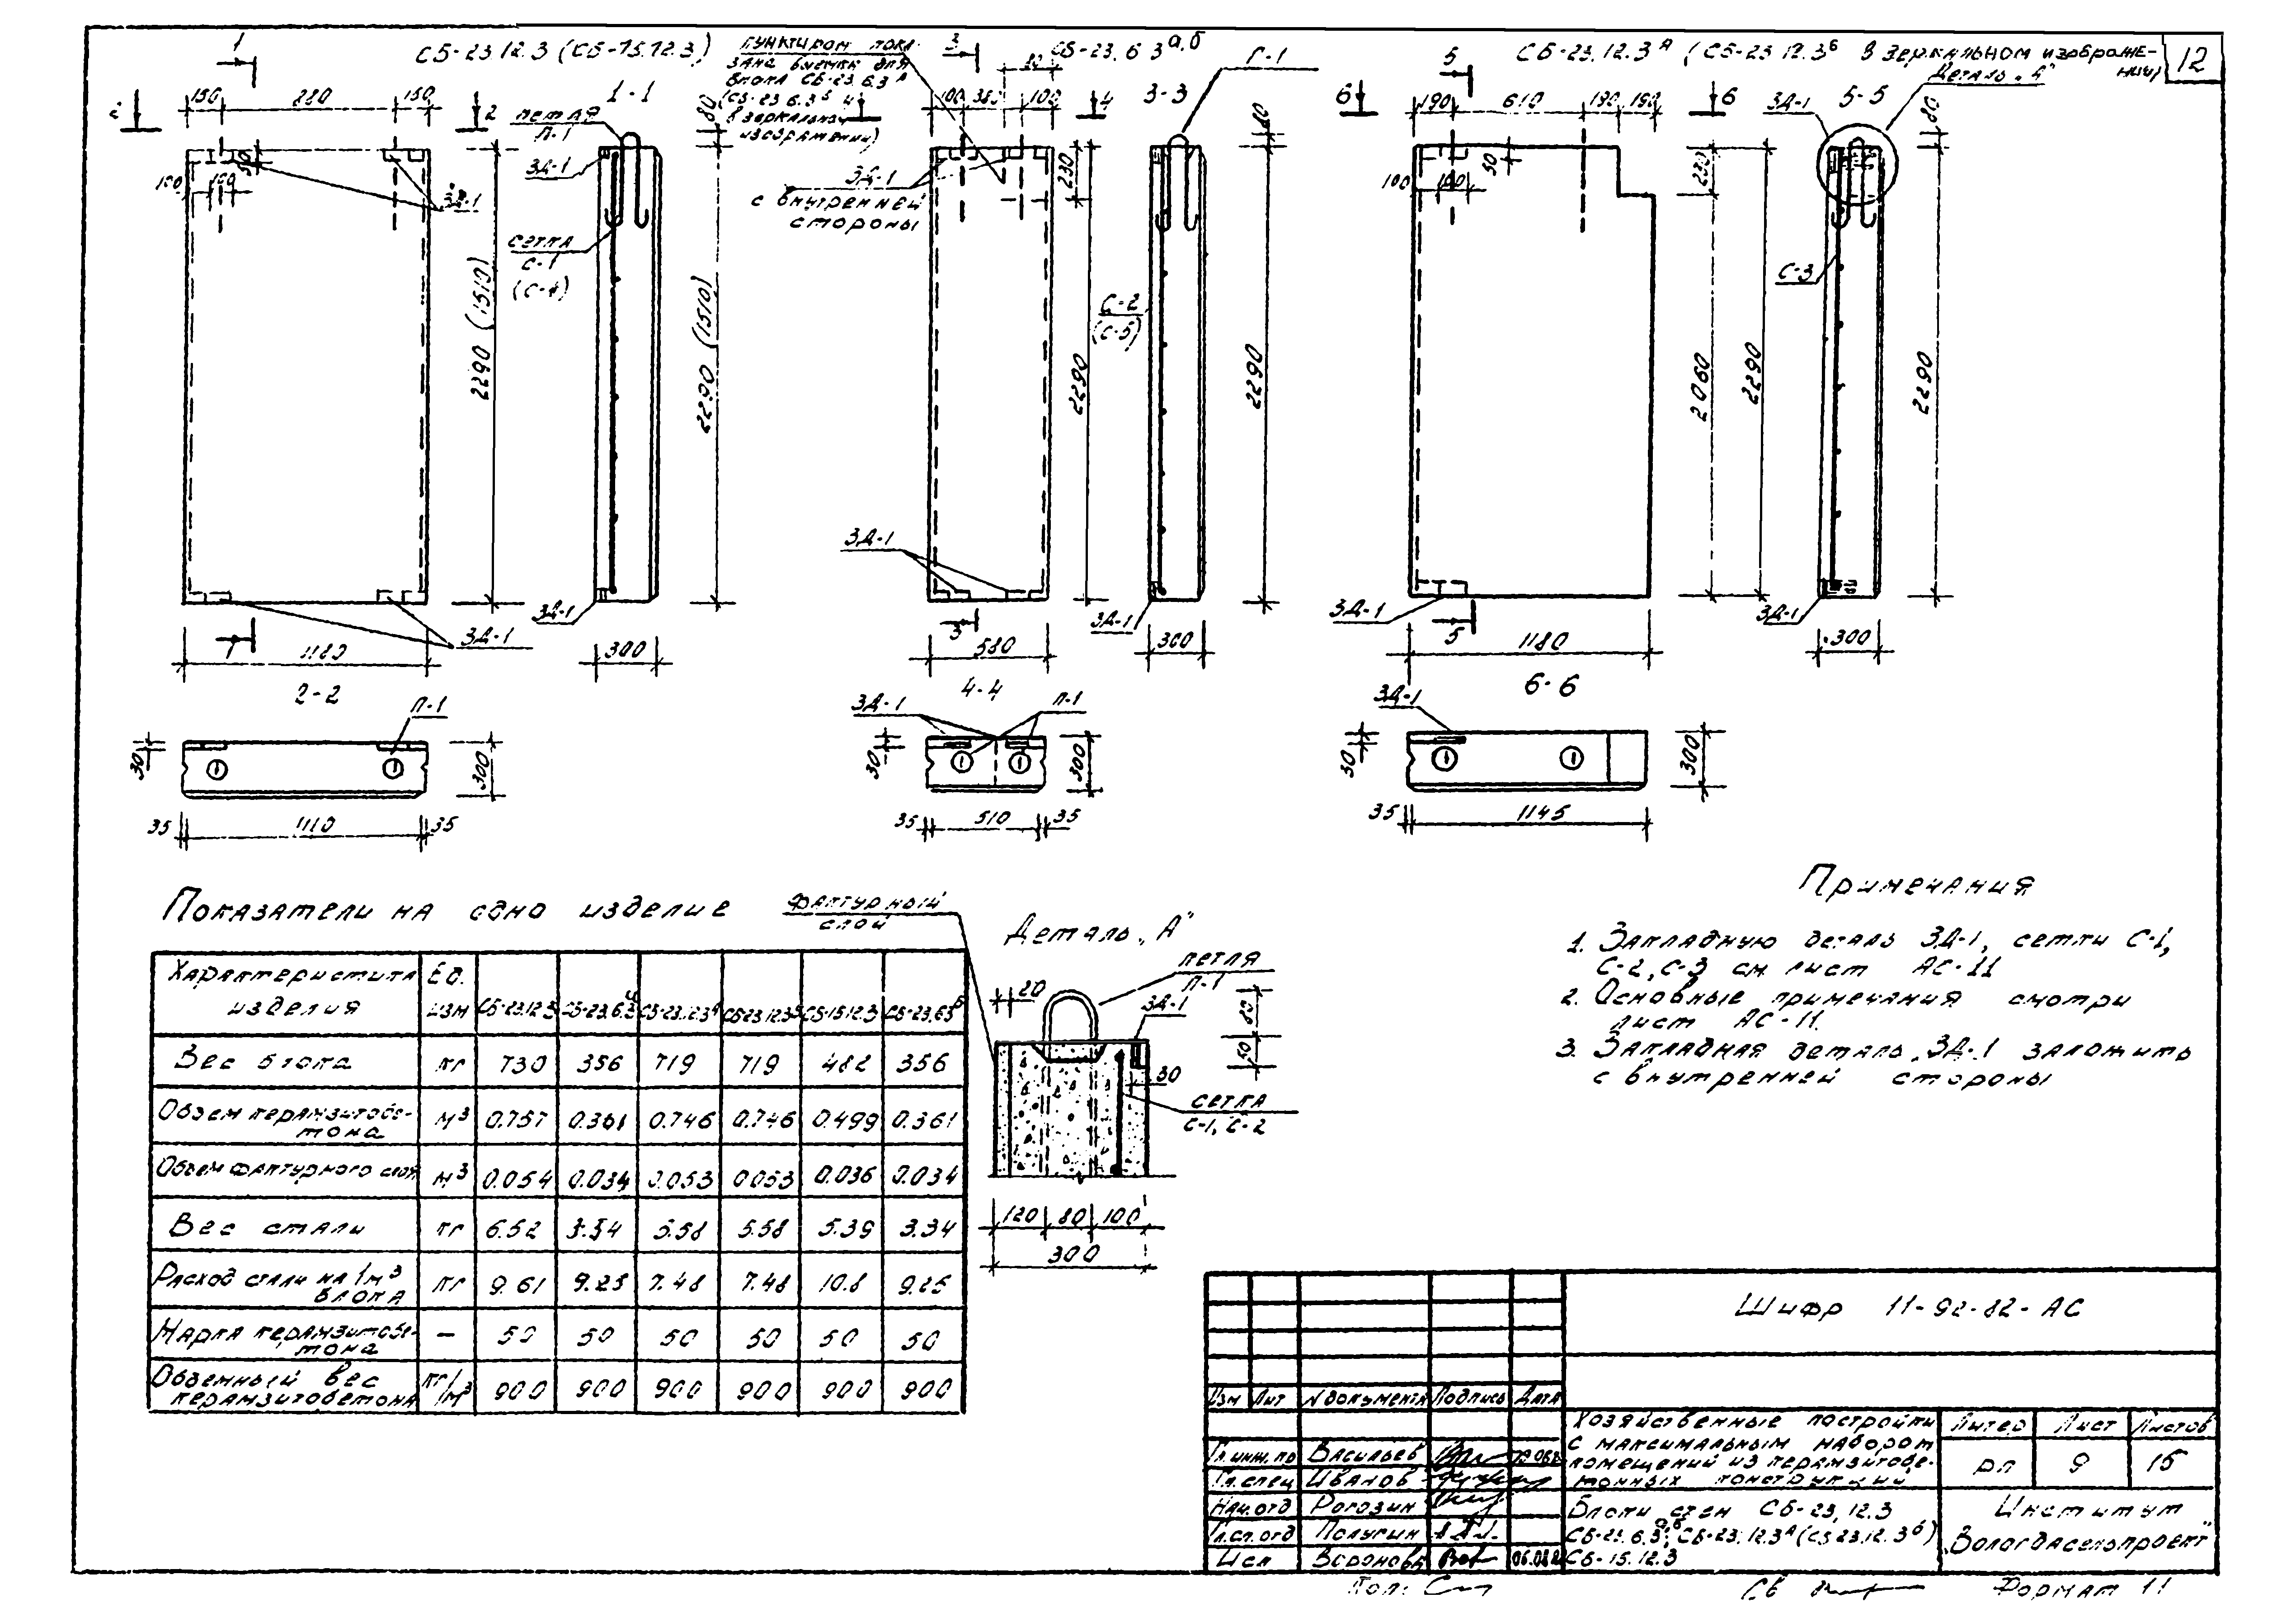 12
СБ-23.12.3 (СБ-15.12.3)
1
1
2
2
150
150
1-1
петля
П-1
ЗД-1
50
100
100
ЗД-1
сетка
С-1
(С-4)
2290 (1510)
2290 (1510)
80
ЗД-1
ЗД-1
1180
300
2-2
П-1
30
300
35
1110
35
пунктиром пока-
зана выемка для
блока СБ-23.6.3А
(СБ-23.6.3Б
в зеркальном
изображении)
СБ-23.6.3а,б
3
3
4
4
100
100
3-3
П-1
80
230
ЗД-1
с внутренней
стороны
С-2
(С-5)
2290
2290
ЗД-1
ЗД-1
580
300
4-4
ЗД-1
П-1
30
300
35
510
35
СБ-23.12.3А (СБ-23.12.3Б в зеркальном изображе-
нии)
Деталь „А"
5
5
6
6
190
610
190
190
ЗД-1
5-5
80
50
100
100
230
С-3
2060
2290
2290
ЗД-1
ЗД-1
1180
300
6-6
ЗД-1
30
300
35
1145
Показатели на одно изделие
Характеристика изделия Ед. изм СБ-23.12.3 СБ-23.6.3а СБ-23.12.3А СБ-23.12.3Б СБ-15.12.3 СБ-23.6.3Б
Вес блока кг 730 356 719 719 482 356
Объем керамзитобе-
тона м3 0.757 0.361 0.746 0.746 0.499 0.361
Объем фактурного слоя м3 0.054 0.034 0.053 0.053 0.036 0.034
Вес стали кг 6.52 3.34 5.58 5.58 5.39 3.34
Расход стали на 1м3
блока кг 9.61 9.25 7.48 7.48 10.8 9.25
Марка керамзитобе-
тона — 50 50 50 50 50 50
Объемный вес
керамзитобетона кг/м3 900 900 900 900 900 900
фактурный
слой
Деталь „А"
петля
П-1
20
ЗД-1
80
50
30
сетка
С-1, С-2
120 80 100
300
Примечания
1. Закладную деталь ЗД-1, сетки С-1,
С-2, С-3 см лист АС-11
2. Основные примечания смотри
лист АС-11.
3. Закладная деталь ЗД-1 заложить
с внутренней стороны
Шифр 11-92-82-АС
Изм Лит N документа Подпись Дата
Гл.инж.пр Васильев
Гл.спец Иванов
Нач.отд Рогозин
Гл.сп.отд Полугин
Исп Воронова 06.082
Хозяйственные постройки
с максимальным набором
помещений из керамзитобе-
тонных конструкций
Литер Лист Листов
рп 9 15
Блоки стен СБ-23.12.3
СБ-23.6.3а,б; СБ-23.12.3А (СБ 23.12.3Б)
СБ-15.12.3
Институт
„Вологдасельпроект"
Коп:
Св
Формат 11